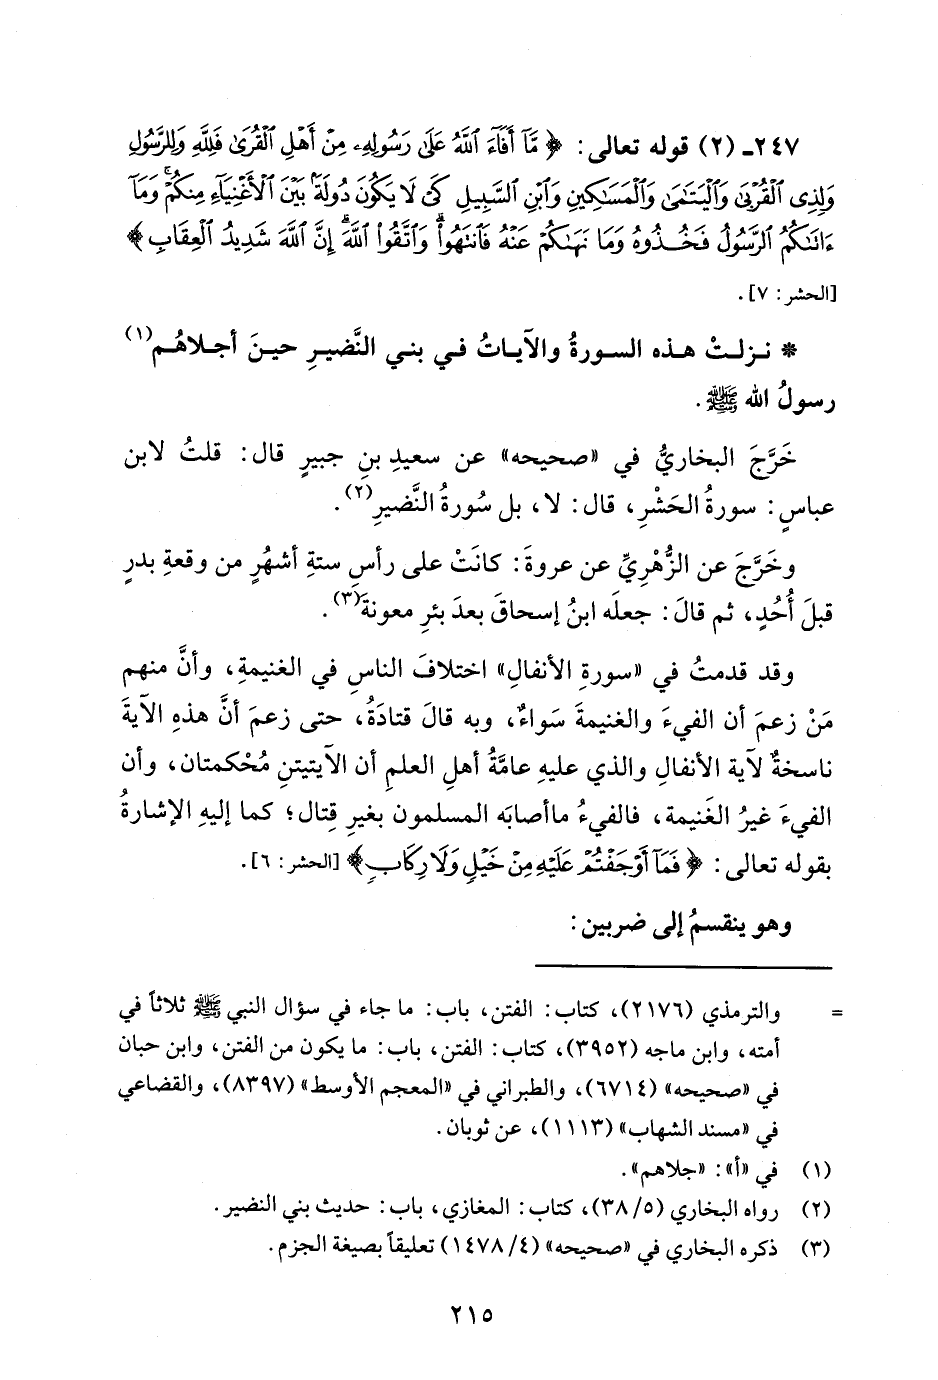 ٢٤٧ـ (٢) قوله تعالى: ﴿ مَّآ أَفَآءَ ٱللَّهُ عَلَىٰ رَسُولِهِۦ مِنْ أَهْلِ ٱلْقُرَىٰ فَلِلَّهِ وَلِلرَّسُولِ
وَلِذِى ٱلْقُرْبَىٰ وَٱلْيَتَـٰمَىٰ وَٱلْمَسَـٰكِينِ وَٱبْنِ ٱلسَّبِيلِ كَىْ لَا يَكُونَ دُولَةًۢ بَيْنَ ٱلْأَغْنِيَآءِ مِنكُمْ ۚ وَمَآ
ءَاتَىٰكُمُ ٱلرَّسُولُ فَخُذُوهُ وَمَا نَهَىٰكُمْ عَنْهُ فَٱنتَهُوا۟ ۚ وَٱتَّقُوا۟ ٱللَّهَ ۖ إِنَّ ٱللَّهَ شَدِيدُ ٱلْعِقَابِ ﴾
[الحشر: ٧].
* نزلتْ هذه السورةُ والآياتُ في بني النَّضيرِ حينَ أجلاهُم(١)
رسولُ الله ﷺ.
خَرَّجَ البخاريُّ في «صحيحه» عن سعيدِ بنِ جبيرٍ قال: قلتُ لابن
عباسٍ: سورةُ الحَشْرِ، قال: لا، بل سُورةُ النَّضيرِ(٢).
وخَرَّجَ عن الزُّهْرِيِّ عن عروةَ: كانَتْ على رأسِ ستةِ أشهُرٍ من وقعةِ بدرٍ
قبلَ أُحُدٍ، ثم قالَ: جعلَه ابنُ إسحاقَ بعدَ بئرِ معونةَ(٣).
وقد قدمتُ في «سورةِ الأنفالِ» اختلافَ الناسِ في الغنيمةِ، وأنَّ منهم
مَنْ زعمَ أن الفيءَ والغنيمةَ سَواءٌ، وبه قالَ قتادَةُ، حتى زعمَ أنَّ هذهِ الآيةَ
ناسخةٌ لآية الأنفالِ والذي عليهِ عامَّةُ أهلِ العلمِ أن الآيتيتنِ مُحْكمتان، وأن
الفيءَ غيرُ الغَنيمة، فالفيءُ ماأصابَه المسلمون بغيرِ قِتال؛ كما إليهِ الإشارةُ
بقوله تعالى: ﴿ فَمَآ أَوْجَفْتُمْ عَلَيْهِ مِنْ خَيْلٍ وَلَا رِكَابٍ ﴾ [الحشر: ٦].
وهو ينقسمُ إلى ضربين:
= والترمذي (٢١٧٦)، كتاب: الفتن، باب: ما جاء في سؤال النبي ﷺ ثلاثاً في
أمته، وابن ماجه (٣٩٥٢)، كتاب: الفتن، باب: ما يكون من الفتن، وابن حبان
في «صحيحه» (٦٧١٤)، والطبراني في «المعجم الأوسط» (٨٣٩٧)، والقضاعي
في «مسند الشهاب» (١١١٣)، عن ثوبان.
(١) في «أ»: «جلاهم».
(٢) رواه البخاري (٥/ ٣٨)، كتاب: المغازي، باب: حديث بني النضير.
(٣) ذكره البخاري في «صحيحه» (٤/ ١٤٧٨) تعليقاً بصيغة الجزم.
٢١٥